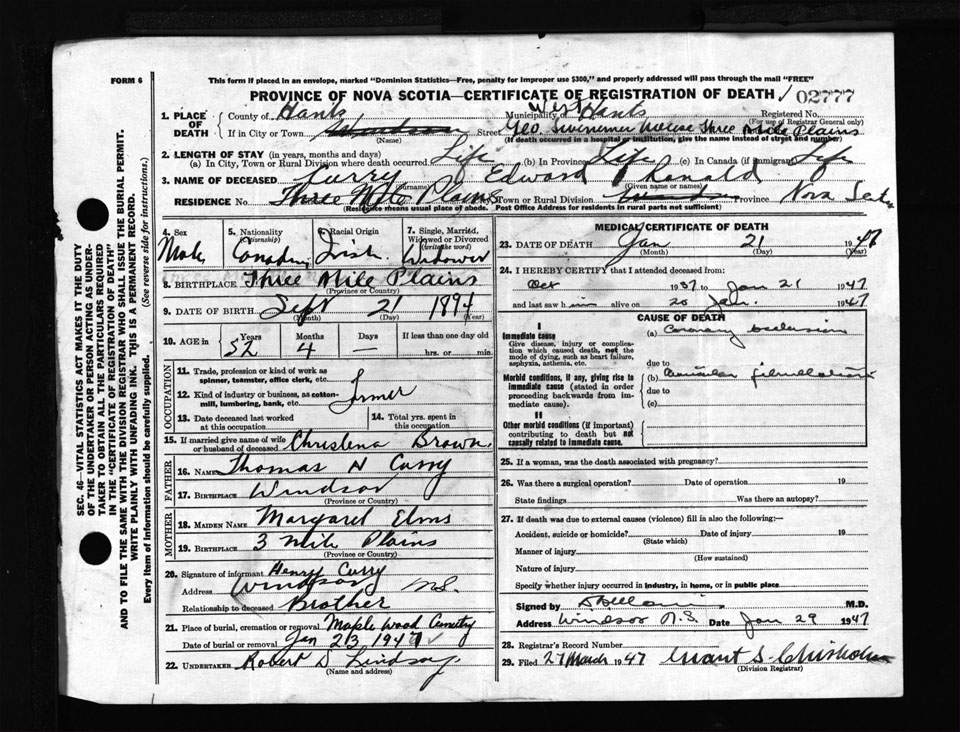 FORM 6
This form if placed in an envelope, marked "Dominion Statistics—Free, penalty for improper use $300," and properly addressed will pass through the mail "FREE"
PROVINCE OF NOVA SCOTIA—CERTIFICATE OF REGISTRATION OF DEATH
02777
1. PLACE OF DEATH
County of Hants Municipality West Hants Registered No.
(For use of Registrar General only)
If in City or Town Windsor Street Geo House Three Mile Plains
(Name) (If death occurred in a hospital or institution, give the name instead of street and number)
2. LENGTH OF STAY (in years, months and days)
(a) In City, Town or Rural Division where death occurred Life (b) In Province Life (c) In Canada (if immigrant) Life
3. NAME OF DECEASED Curry Edward Ronald
(Surname) (Given name or names)
RESIDENCE No. Three Mile Plains Town or Rural Division Windsor Province Nova Scotia
(Residence means usual place of abode. Post Office Address for residents in rural parts not sufficient)
4. Sex Male
5. Nationality (Citizenship) Canadian
6. Racial Origin Irish
7. Single, Married, Widowed or Divorced (write the word) Widower
8. BIRTHPLACE Three Mile Plains
(Province or Country)
9. DATE OF BIRTH Sept 21 1894
(Month) (Day) (Year)
10. AGE in Years 52 Months 4 Days — If less than one day old
hrs. or min.
OCCUPATION
11. Trade, profession or kind of work as spinner, teamster, office clerk, etc.
12. Kind of industry or business, as cotton-mill, lumbering, bank, etc. Farmer
13. Date deceased last worked at this occupation
14. Total yrs. spent in this occupation
15. If married give name of wife or husband of deceased Christena Brown
FATHER
16. NAME Thomas H Curry
17. BIRTHPLACE Windsor
(Province or Country)
MOTHER
18. MAIDEN NAME Margaret Elms
19. BIRTHPLACE 3 Mile Plains
(Province or Country)
20. Signature of informant Henry Curry
Address Windsor NS.
Relationship to deceased Brother
21. Place of burial, cremation or removal Maple Wood Cemetry
Date of burial or removal Jan 23 1947
22. UNDERTAKER Robert D Lindsay
(Name and address)
MEDICAL CERTIFICATE OF DEATH
23. DATE OF DEATH Jan 21 1947
(Month) (Day) (Year)
24. I HEREBY CERTIFY that I attended deceased from:
Oct 1937 to Jan 21 1947
and last saw him alive on 20 Jan. 1947
CAUSE OF DEATH
I
Immediate cause
Give disease, injury or complication which caused death, not the mode of dying, such as heart failure, asphyxia, asthenia, etc.
(a) Coronary occlusion
due to
Morbid conditions, if any, giving rise to immediate cause (stated in order proceeding backwards from immediate cause).
(b) Auricular fibrillation
due to
(c)
II
Other morbid conditions (if important) contributing to death but not causally related to immediate cause.
25. If a woman, was the death associated with pregnancy?
26. Was there a surgical operation? Date of operation 19
State findings Was there an autopsy?
27. If death was due to external causes (violence) fill in also the following:—
Accident, suicide or homicide? Date of injury 19
(State which)
Manner of injury
(How sustained)
Nature of injury
Specify whether injury occurred in industry, in home, or in public place
Signed by M.D.
Address Windsor N.S. Date Jan 29 1947
28. Registrar's Record Number
29. Filed 27 March 1947 Grant S. Chisholm
(Division Registrar)
SEC. 46—VITAL STATISTICS ACT MAKES IT THE DUTY
OF THE UNDERTAKER OR PERSON ACTING AS UNDER-
TAKER TO OBTAIN ALL THE PARTICULARS REQUIRED
IN THE "CERTIFICATE OF REGISTRATION OF DEATH"
AND TO FILE THE SAME WITH THE DIVISION REGISTRAR WHO SHALL ISSUE THE BURIAL PERMIT.
WRITE PLAINLY WITH UNFADING INK. THIS IS A PERMANENT RECORD.
Every item of Information should be carefully supplied. (See reverse side for instructions.)